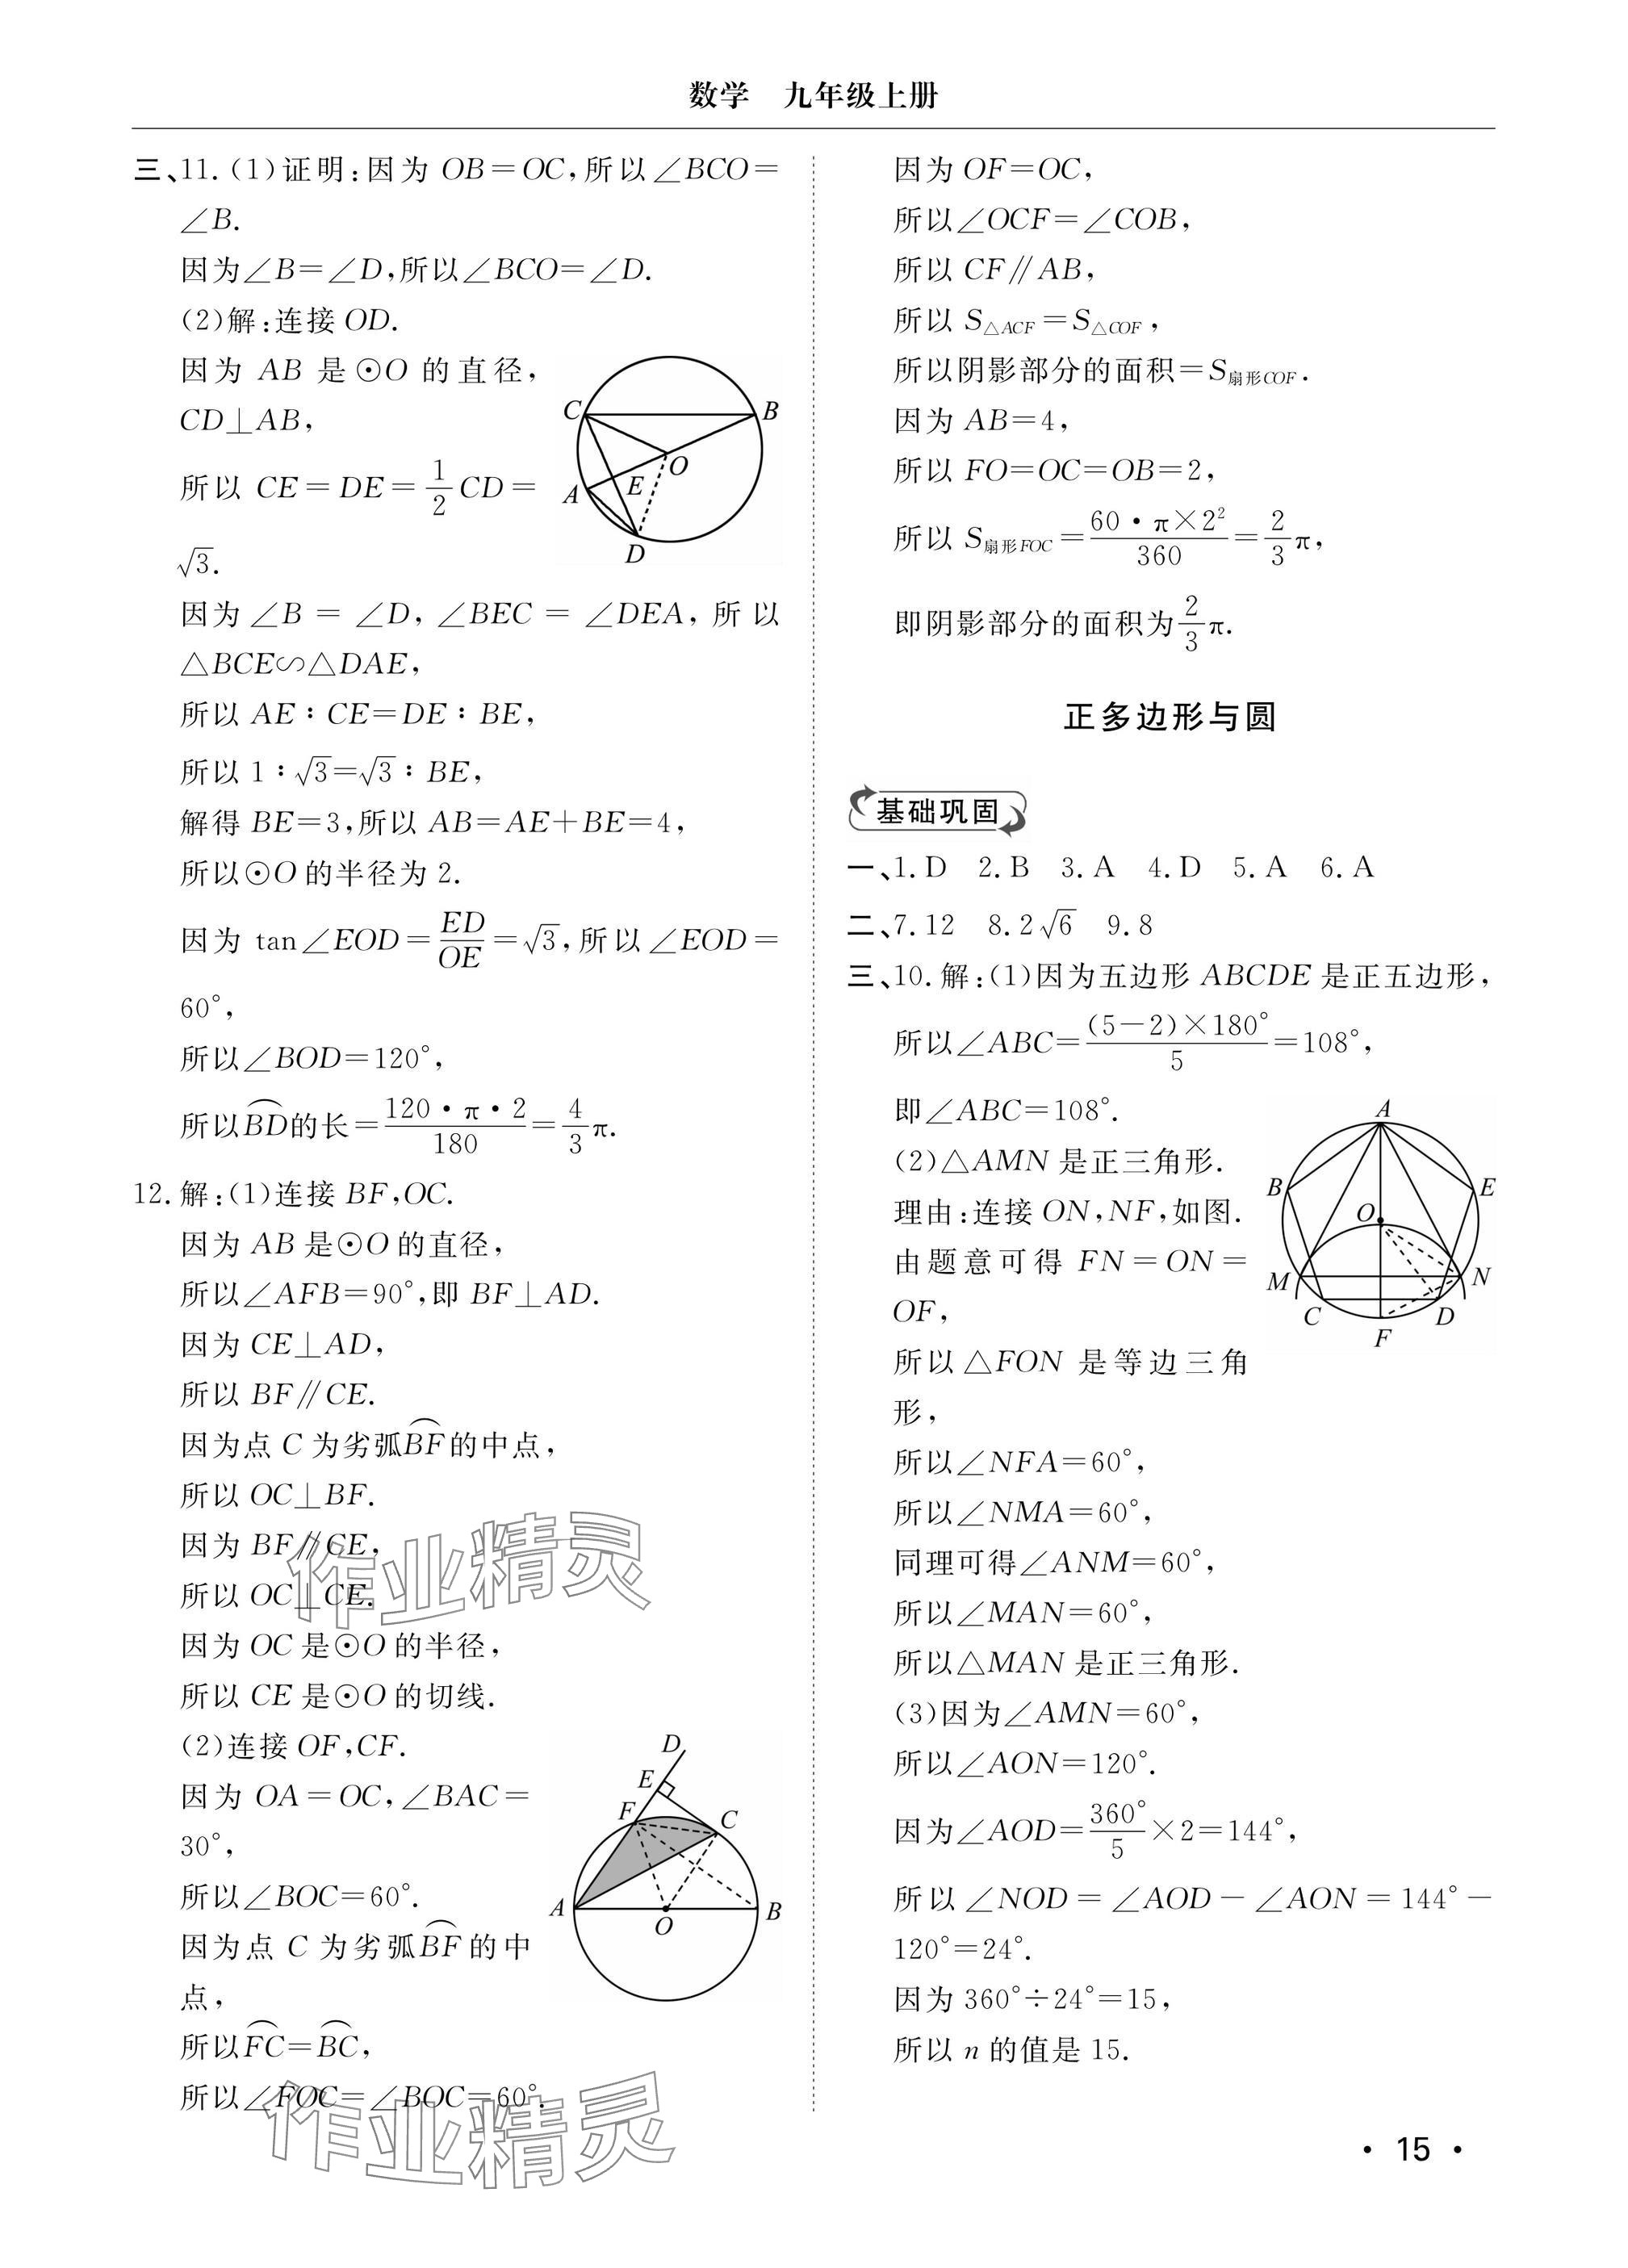 数学 九年级上册
三、11.(1)证明:因为 OB=OC,所以∠BCO=
∠B.
因为∠B=∠D,所以∠BCO=∠D.
(2)解:连接 OD.
因为 AB 是⊙O 的直径,
CD⊥AB,
所以 CE=DE=1/2 CD=
√3.
C
B
O
E
A
D
因为∠B=∠D,∠BEC=∠DEA,所以
△BCE∽△DAE,
所以 AE∶CE=DE∶BE,
所以 1∶√3=√3∶BE,
解得 BE=3,所以 AB=AE+BE=4,
所以⊙O 的半径为 2.
因为 tan∠EOD=ED/OE=√3,所以∠EOD=
60°,
所以∠BOD=120°,
所以BD⌒的长=120·π·2/180=4/3π.
12.解:(1)连接 BF,OC.
因为 AB 是⊙O 的直径,
所以∠AFB=90°,即 BF⊥AD.
因为 CE⊥AD,
所以 BF∥CE.
因为点 C 为劣弧BF⌒的中点,
所以 OC⊥BF.
因为 BF∥CE,
所以 OC⊥CE.
因为 OC 是⊙O 的半径,
所以 CE 是⊙O 的切线.
(2)连接 OF,CF.
因为 OA=OC,∠BAC=
30°,
所以∠BOC=60°.
因为点 C 为劣弧BF⌒的中
点,
D
E
F
C
A
O
B
所以FC⌒=BC⌒,
所以∠FOC=∠BOC=60°.
因为 OF=OC,
所以∠OCF=∠COB,
所以 CF∥AB,
所以 S△ACF=S△COF,
所以阴影部分的面积=S扇形COF.
因为 AB=4,
所以 FO=OC=OB=2,
所以 S扇形FOC=60·π×2²/360=2/3π,
即阴影部分的面积为2/3π.
正多边形与圆
基础巩固
一、1.D 2.B 3.A 4.D 5.A 6.A
二、7.12 8.2√6 9.8
三、10.解:(1)因为五边形 ABCDE 是正五边形,
所以∠ABC=(5-2)×180°/5=108°,
即∠ABC=108°.
(2)△AMN 是正三角形.
理由:连接 ON,NF,如图.
由题意可得 FN=ON=
OF,
所以△FON 是等边三角
形,
A
B
E
O
M
N
C
D
F
所以∠NFA=60°,
所以∠NMA=60°,
同理可得∠ANM=60°,
所以∠MAN=60°,
所以△MAN 是正三角形.
(3)因为∠AMN=60°,
所以∠AON=120°.
因为∠AOD=360°/5×2=144°,
所以∠NOD=∠AOD-∠AON=144°-
120°=24°.
因为 360°÷24°=15,
所以 n 的值是 15.
作业精灵
作业精灵
· 15 ·